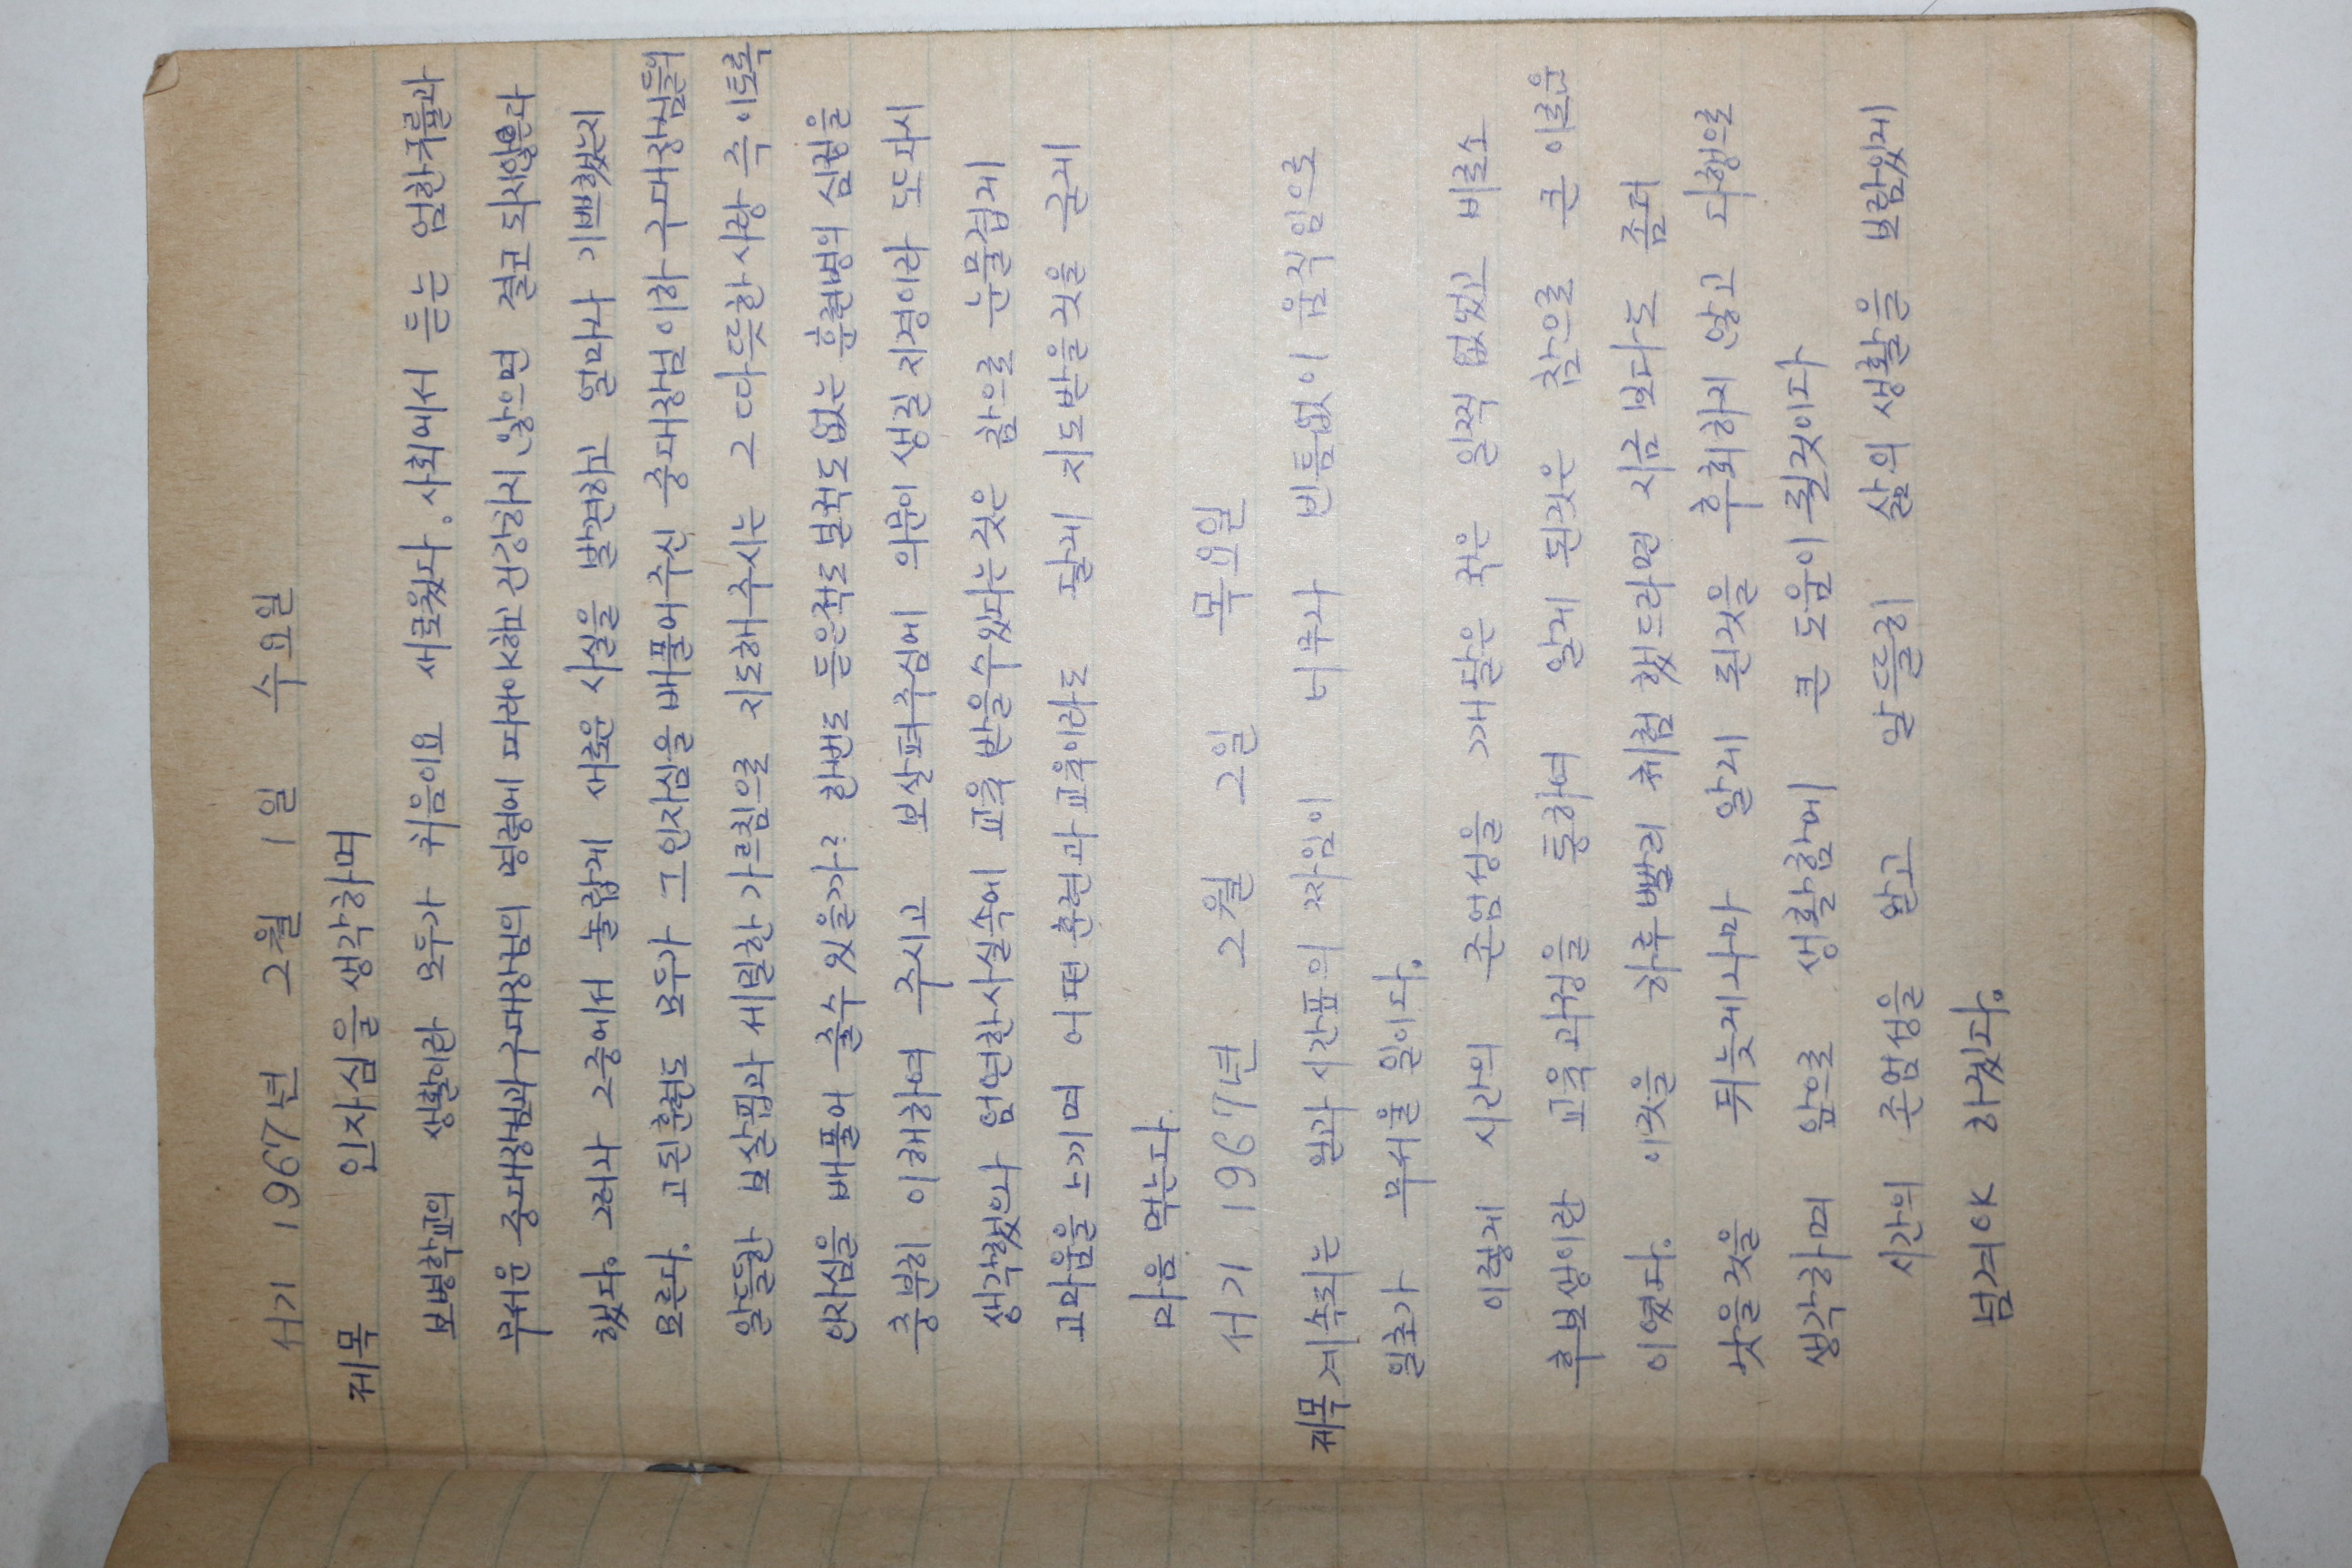 서기 1967년 2월 1일 수요일
제목 인자심을 생각하며
보병학교의 생활이란 모두가 처음이요 새로웠다. 사회에서 듣는 엄한규률과
무서운 중대장님과구대장님의 명령에 따라야하고 건강하지 않으면 결코 되지않은다
했다. 그러나 그중에서 놀랍게 새로운 사실을 발견하고 얼마나 기쁘했는지
모른다. 고된훈련도 모두가 그인자심을 배풀어주신 중대장님이하 구대장님들의
알뜰한 보살핌과 세밀한 가르침으로 지도해주시는 그 따뜻한 사랑 즉 이토록
인자심을 배풀어 줄수 있을까? 한번도 듣은적도 본적도 없는 훈련병의 심정을
충분히 이해하여 주시고 보살펴주심에 의문이 생길 지경이라 또다시
생각했으나 엄연한사실속에 교육 받을수있다는것은 참으로 눈물겹게
고마움을 느끼며 어떤 훈련과 교육이라도 달게 지도받을것을 굳게
마음 먹는다.
서기 1967년 2월 2일 목요일
제목 계속되는 일과시간표의 짜임이 너무나 빈틈없이 움직임으로
일초가 무서울 일이다.
이렇게 시간의 존엄성을 깨달은 적은 일찍 없었고 비로소
후보생이란 교육과정을 통하여 알게 된것은 참으로 큰 이로운
이였다. 이것을 하루빨리 체험했드라면 지금보다도 좀더
낫을것을 뒤늦게나마 알게 된것을 후회하지 않고 다행으로
생각하며 앞으로 생활함에 큰 도움이 될것이다
시간의 존엄성을 알고 알뜰히 삶의 생활을 보람있게
넘겨야 하겠다.